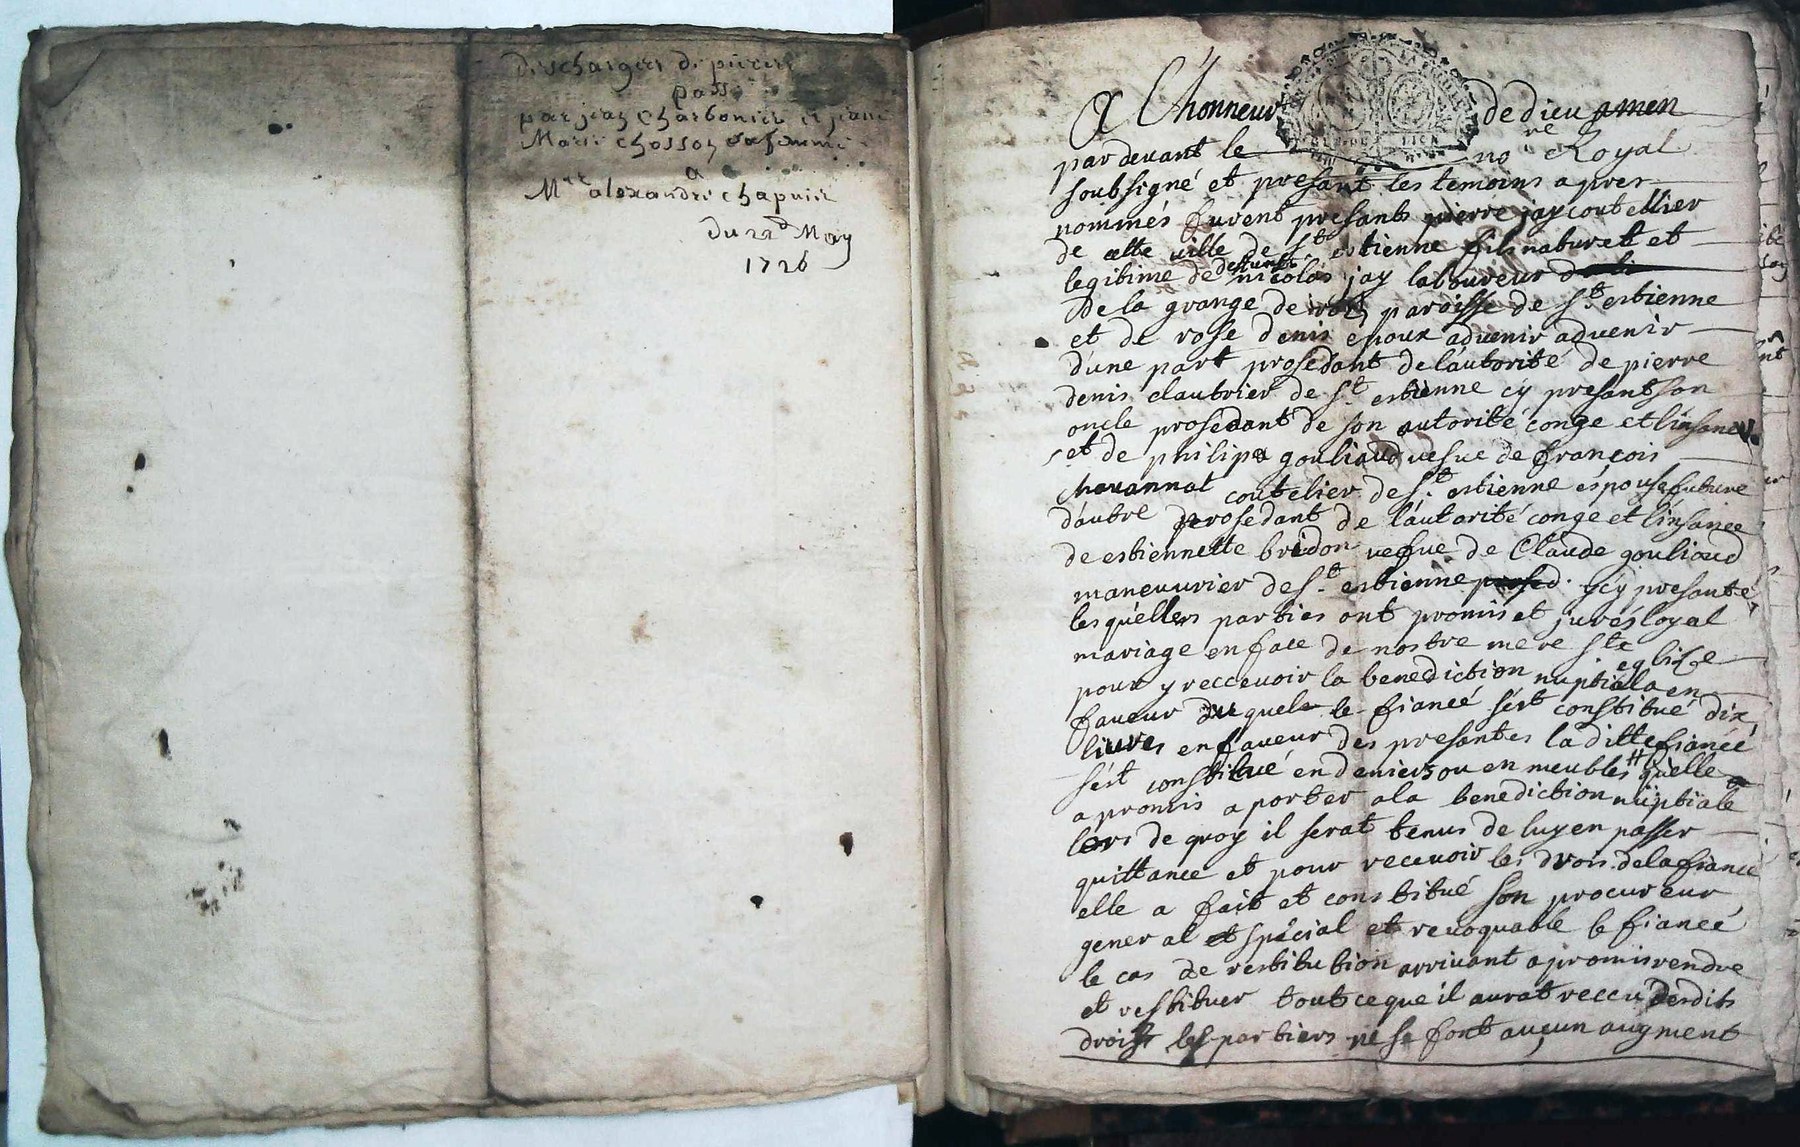 deschargers de pieces
passé
par jean Charbonier et jeane
Marie chosson sa femme
a
Mre alexandre chapuis
du 22d May
1726
A L'honneur de dieu amen
pardevant le nore Royal
soubsigné et presant les temoins apres
nommés furent presants pierre jay coutellier
de cette ville de St estienne fils naturel et
legitime de deffunt nicolas jay laboureur
De la grange de paroisse de St estienne
et de rose denis epoux advenir advenir
d'une part prosedant de l'autorité de pierre
denis clautrier de St estienne cy presant son
oncle prosedant de son autorité conge et linsance
et de philipa gouliaud vefue de françois
chavannat coutelier de St estienne espouse future
d'autre prosedant de l'autorité congé et linsance
de estiennette bridon vefue de Claude gouliaud
maneuvrier de St estienne cy presante
lesquelles parties ont promis et jurés loyal
mariage en face de nostre mere ste eglise
pour y reccevoir la benediction nuptiala en
faveur duquele le fiancé s'est constitué dix
livres en faveur des presantes la ditte fiancée
s'est constitué en deniers ou en meubles # qu'elle
a promis aporter a la benediction nuptiale
lors de quoy il serat tenus de luy en passer
quittance et pour recevoir les drois de la fiancée
elle a fait et constitué son procureur
general et spécial et revoquable le fiancé
le cas de restitution arrivant a promis rendre
et restituer tout ce que il aurat reccu desdits
droist les parties ne se font auçun augment